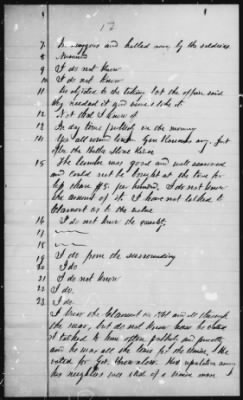 7 In waggons and hauled away by the soldiers
8 Answered
9 I do not know
10 I do not know
11 He objected to the taking but the officer said they needed it and would take it
12 Not that I know of
13 In day time publicly in the
14 Yes all went
off the
15 The lumber was good and well seasoned and could not be bought at the time for less than $5. per hundred. I do not know the amount of it. I have not talked to Claimant as to the value
16 I do not know the quantity
17
18
19 I do from the surrounding
20 I do
21 I do not know
22 I do.
23 I do
I knew the Claimant in 1861 and all through the war, but do not know how he voted
I talked to him often publicly and privately and he was all the time for the Union. He voted for Gov. Brownlow. His reputation among his neighbors was that of a Union man